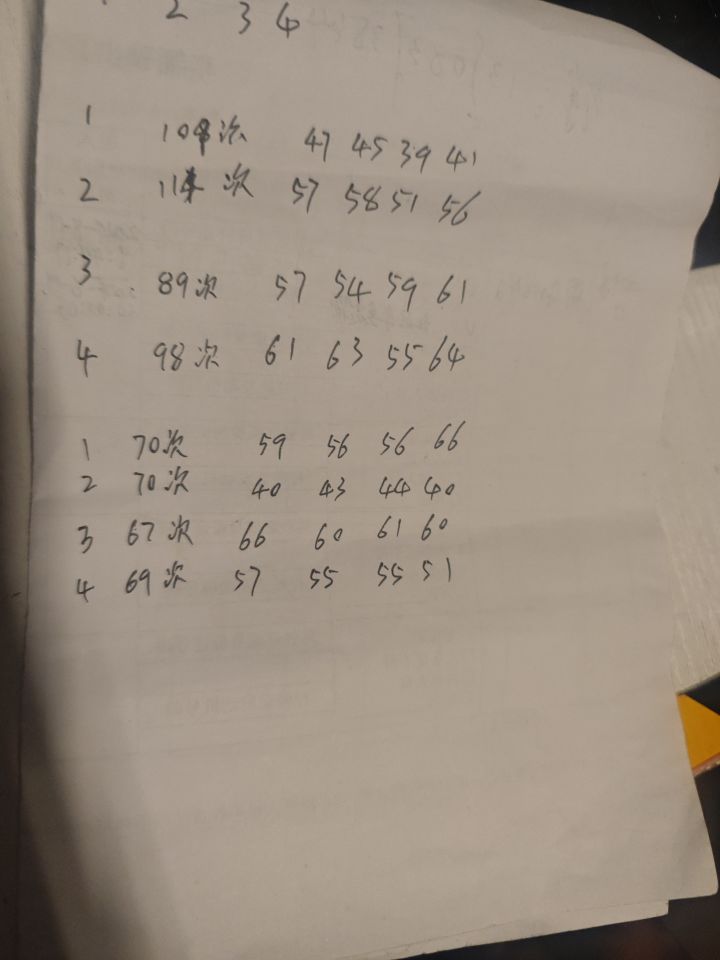 2 3 4
1 108次 47 45 39 41
2 114次 57 58 51 56
3 89次 57 54 59 61
4 98次 61 63 55 64
1 70次 59 56 56 66
2 70次 40 43 44 40
3 67次 66 60 61 60
4 69次 57 55 55 51